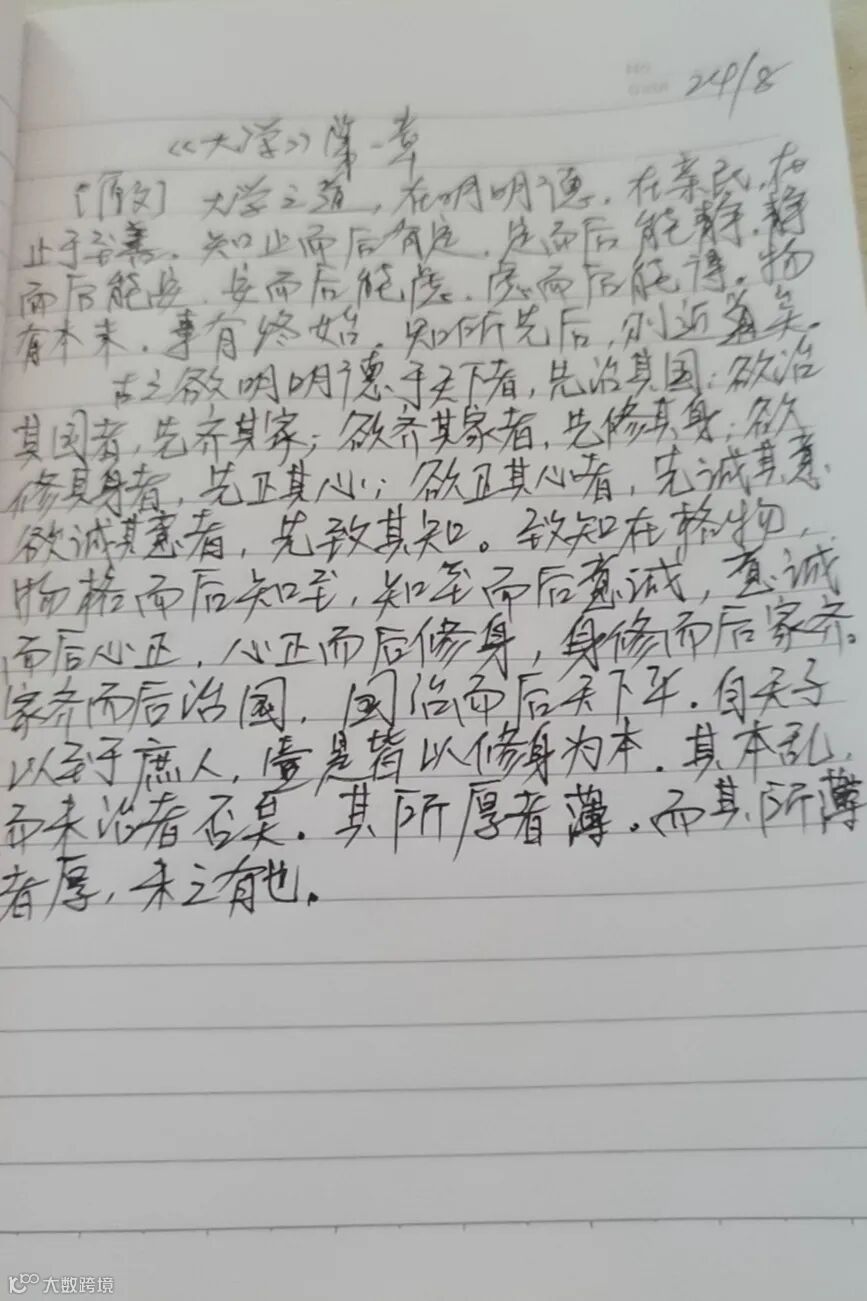 24/8
《大学》第一章
[原文] 大学之道,在明明德.在亲民,在
止于至善.知止而后有定.定而后能静.静
而后能安.安而后能虑.虑而后能得.物
有本末.事有终始.知所先后,则近道矣.
古之欲明明德于天下者,先治其国;欲治
其国者,先齐其家;欲齐其家者,先修其身;欲
修其身者,先正其心;欲正其心者,先诚其意
欲诚其意者,先致其知。致知在格物,
物格而后知至,知至而后意诚,意诚
而后心正,心正而后修身,身修而后家齐。
家齐而后治国,国治而后天下平.自天子
以至于庶人,壹是皆以修身为本.其本乱,
而末治者否矣.其所厚者薄.而其所薄
者厚,未之有也.
大数跨境